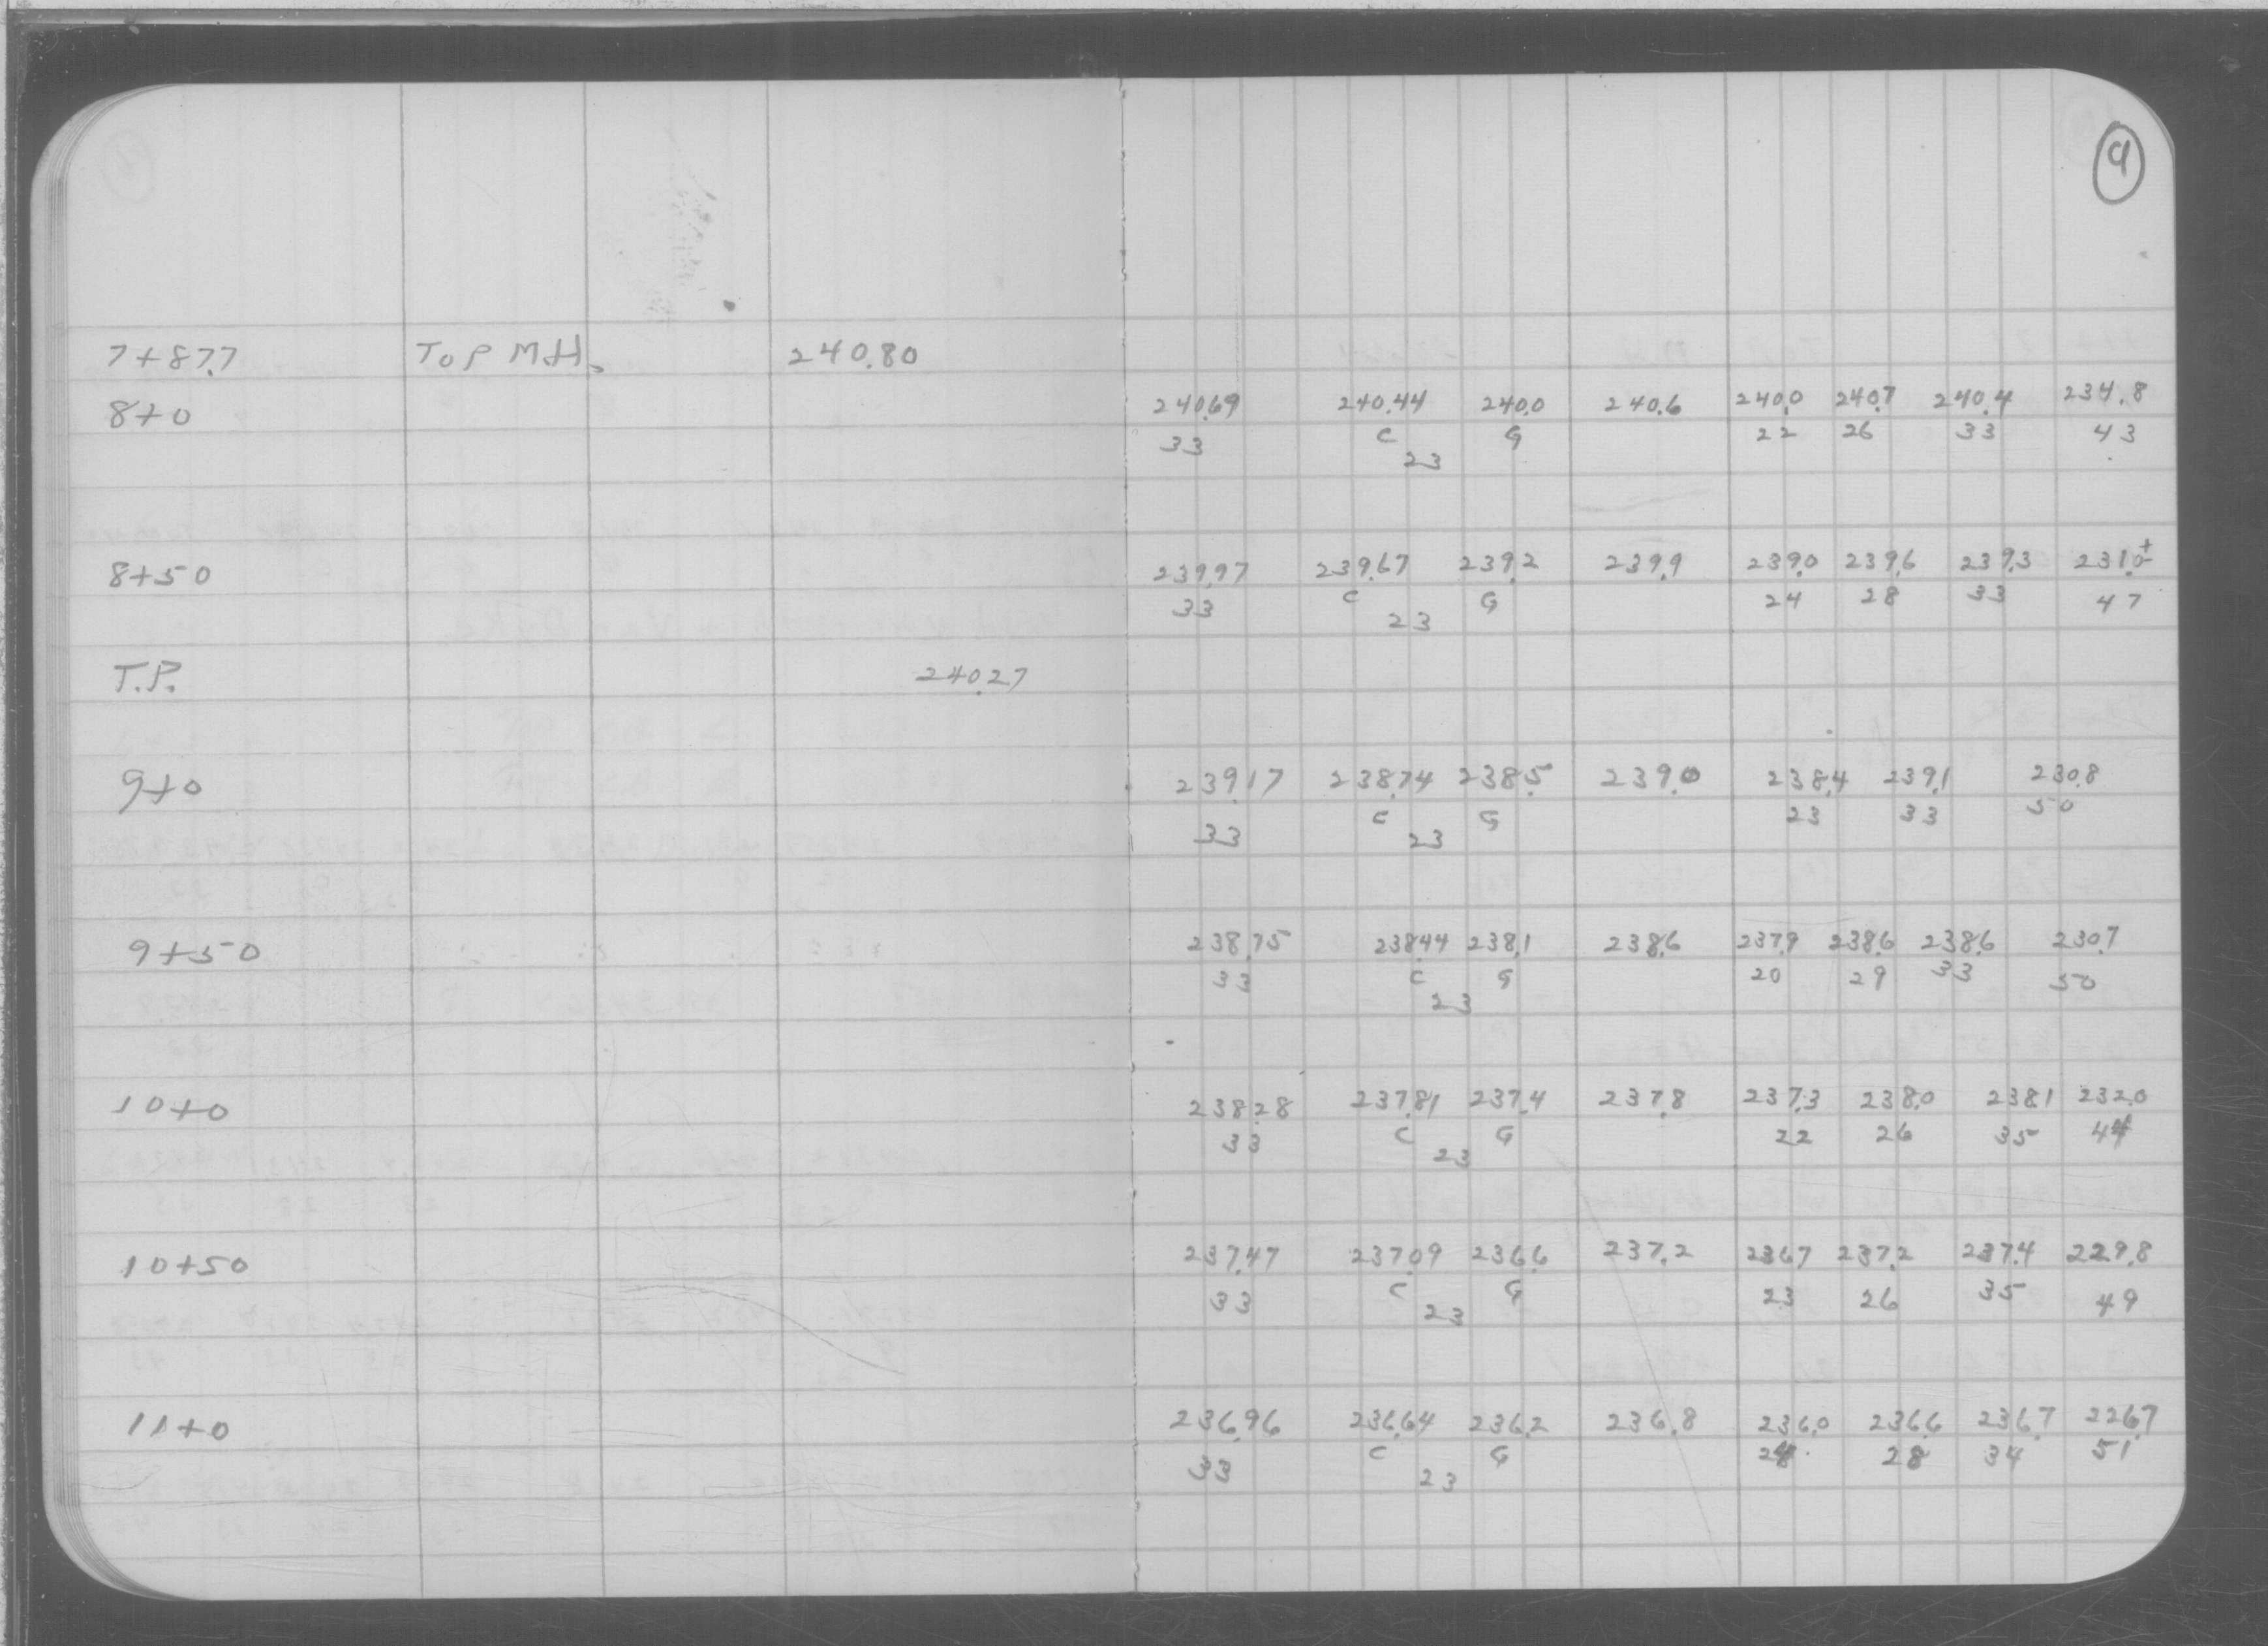 9
7+87.7 TOP M.H. 240.80
8+0 240.69 240.44 240.0 240.6 240.0 240.7 240.4 234.8
33 C G 22 26 33 43
23
8+50 239.97 239.67 239.2 239.9 239.0 239.6 239.3 231.0±
33 C G 24 28 33 47
23
T.P. 240.27
9+0 239.17 238.74 238.5 239.0 238.4 239.1 230.8
33 C G 23 33 50
23
9+50 238.75 238.44 238.1 238.6 237.9 238.6 238.6 230.7
33 C G 20 29 33 50
23
10+0 238.28 237.81 237.4 237.8 237.3 238.0 238.1 232.0
33 C G 22 26 35 44
23
10+50 237.47 237.09 236.6 237.2 236.7 237.2 237.4 229.8
33 C G 23 26 35 49
23
11+0 236.96 236.64 236.2 236.8 236.0 236.6 236.7 226.7
33 C G 24 28 34 51
23